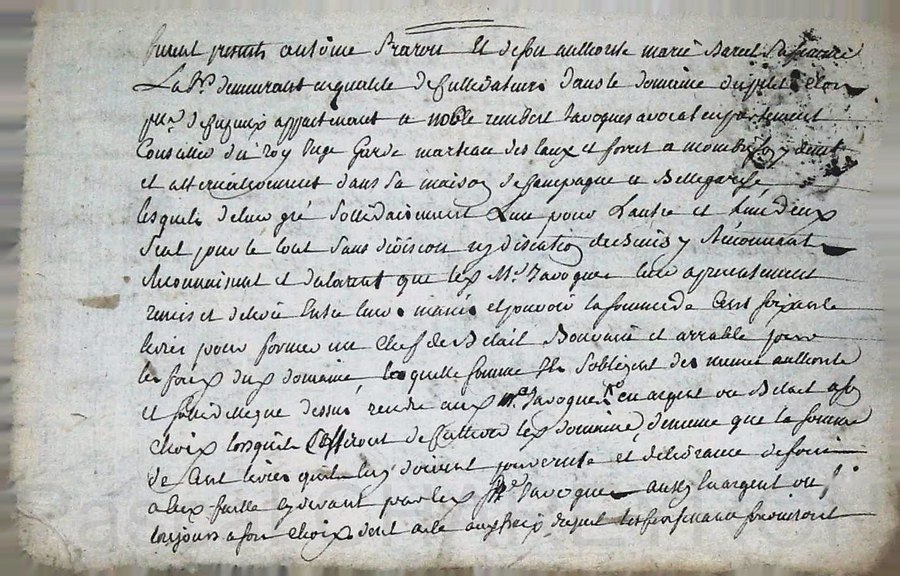 furent presents antoine frarou Et de son authorite marie Barrel sa femme
La bre demeurant en qualite de cultivateurs dans le domaine du
appartenant a noble rembert Javogues avocat en parlement
Conseiller du roy Juge Garde marteau des Eaux et forest a montbrison y demt
et alternativement dans sa maison de Campagne a Bellegarde
lesquels de leur gré sollidairement L'une pour L'autre et L'un deux
seul pour le tout sans division ny discution de biens y Renonçant
Reconnaissent et declarent que led Mr. Javogues leur a presentement
remis et delivré Entre leurs mains et pouvoir la somme de Cent soixante
livres pour former un Chef de Betail Bouvine et arrable pour
les foix dud domaine, laquelle somme Ils s'obligent des memes authorité
et sollidité que dessus rendre aud Mr. Javogues en argent ou Betail a son
choix lorsqu'ils Cesseront de Cultiver led domaine, de meme que la somme
de Cent livres qu'ils luy doivent pour reste et delivrance de foin
a eux faitte cy devant par led Mr. Javogues aussy En argent ou
toujours a son Choix dont acte aux frais desquels les fourniront